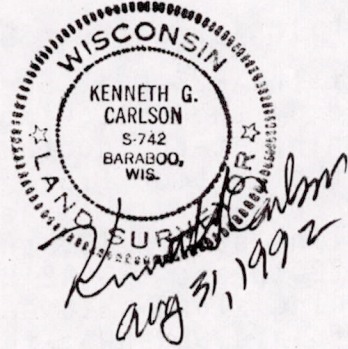 WISCONSIN
KENNETH G.
CARLSON
S-742
BARABOO,
WIS.
LAND SURVEYOR
Kenneth Carlson
Aug 31, 1992